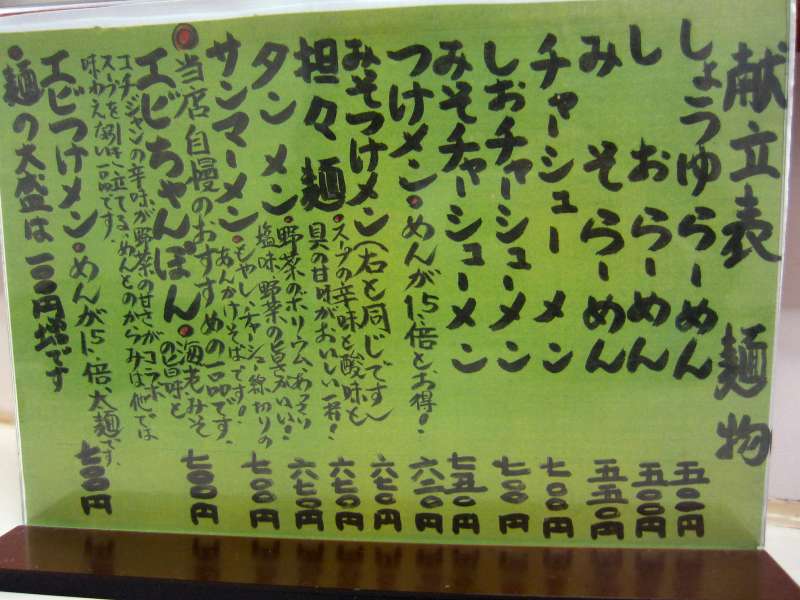 献立表 麺物
しょうゆらーめん 五〇〇円
しおらーめん 五〇〇円
みそらーめん 五五〇円
チャーシューメン 七〇〇円
しおチャーシューメン 七〇〇円
みそチャーシューメン 七五〇円
つけメン・めんが1.5倍とお得! 六五〇円
みそつけメン(右と同じです) 六七〇円
担々麺・スープの辛味と酸味も
具の甘味がおいしい一杯! 六七〇円
タンメン・野菜のボリウム、あっさり
塩味野菜の旨さがいい! 六五〇円
サンマーメン・もやし、チャーシュー線切りの
あんかけそばです! 七〇〇円
当店自慢のおすすめの一品です。
エビちゃんぽん・海老みそ
の旨味と
コチジャンの辛味が野菜の甘さがコラボ
スープを引き立てる、めんとのからみは他では
味わえない一品です。 七〇〇円
エビつけメン・めんが1.5倍、太麺です。 七〇〇円
・麺の大盛は一〇〇円増です